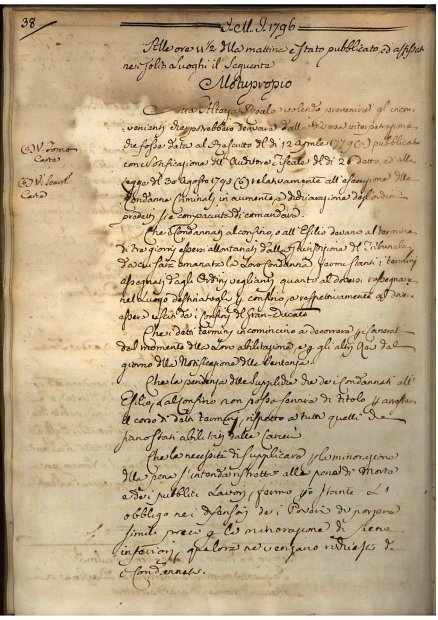 38
A. M. D. 1796
Alle ore 11 1/2 della mattina è stato pubblicato, ed affisso
nei soliti Luoghi il Seguente
Motuproprio
Sua Altezza Reale volendo prevenire gl'incon
venienti che potrebbero derivare dall'diversa interpretazione
che fosse data al Rescritto del dì 12 Aprile 1779 (a) pubblicato
(a) V. Tomo
Carte
con Notificazione dell'Auditore Fiscale del dì 26 detto, ed alla
Legge del 30 Agosto 1795 (b) relativamente all'esecuzione delle
(b) V.
Carte
Condanne Criminali, in aumento, e dichiarazione degl'ordini
predetti si è compiaciuta di comandare
Che i Condannati al confino, o all'Esilio devano al termine
di tre giorni essersi allontanati dalla Giurisdizione del Tribunale
da cui sarà emanata la loro condanna, fermi stanti i termini
assegnati dagli Ordini veglianti quanto al doversi rassegnare
nel luogo destinatogli per confino, e respettivamente al dover
essere usciti da i confini del Gran-Ducato
Che i detti termini incomincino a decorrere per i carcerati
dal momento della loro abilitazione, e per gli altri
giorno della Notificazione della Sentenza
Che la pendenza delle Suppliche dei Condannati all'
Esilio, e al confino non possa servire di titolo per arrestare
il corso di detti termini rispetto a tutti quelli che
siano stati abilitati dalle Carceri
Che la necessità di supplicare per la minorazione
della pena s'intenda ristretta alle pene di Morte
e dei pubblici Lavori, fermo stante l'
obbligo nei difensori dei Poveri di porgere
simili preci per la minorazione di pene
inferiori, qualora ne vengano richiesti da
i Condannati